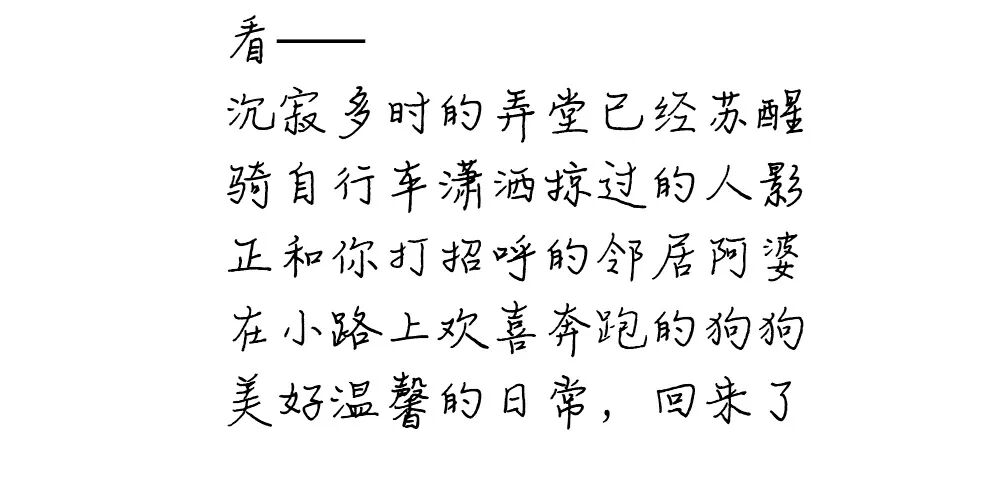 看——
沉寂多时的弄堂已经苏醒
骑自行车潇洒掠过的人影
正和你打招呼的邻居阿婆
在小路上欢喜奔跑的狗狗
美好温馨的日常，回来了